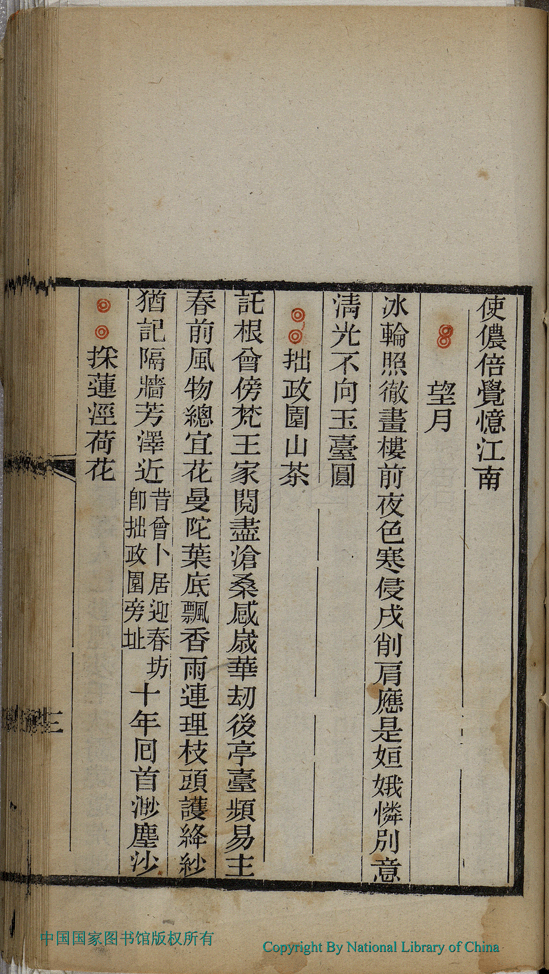 使儂倍覺憶江南
望月
冰輪照徹畫樓前夜色寒侵戌削肩應是姮娥憐別意
淸光不向玉臺圓
拙政園山茶
託根曾傍梵王家閱盡滄桑感歲華劫後亭臺頻易主
春前風物總宜花曼陀葉底飄香雨連理枝頭護絳紗
猶記隔牆芳澤近昔曾卜居迎春坊卽拙政園旁址十年回首渺塵沙
採蓮涇荷花
三
中国国家图书馆版权所有
Copyright By National Library of China